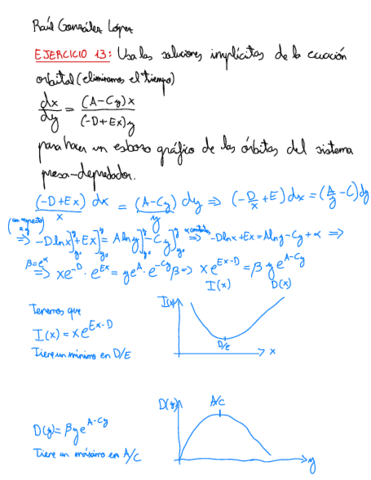 Raúl González López
EJERCICIO 13: Usa las soluciones implícitas de la ecuación
orbital (eliminamos el tiempo)
dx/dy = (A-Cy)x / (-D+Ex)y
para hacer un esbozo gráfico de las órbitas del sistema
presa-depredador.
(-D+Ex)/x dx = (A-Cy)/y dy ⇒ (-D/x + E)dx = (A/y - C)dy
⇒ -D ln x] + Ex] = A ln y] - Cy] ⇒ -D ln x + Ex = A ln y - Cy + α ⇒
β=e^α ⇒ x e^-D · e^Ex = y e^A · e^-Cy β ⇒ x e^(Ex-D) = β y e^(A-Cy)
I(x) D(x)
Tenemos que
I(x) = x e^(Ex-D)
Tiene un mínimo en D/E
I(x)
D/E
x
D(y) = β y e^(A-Cy)
Tiene un máximo en A/C
D(y)
A/C
y